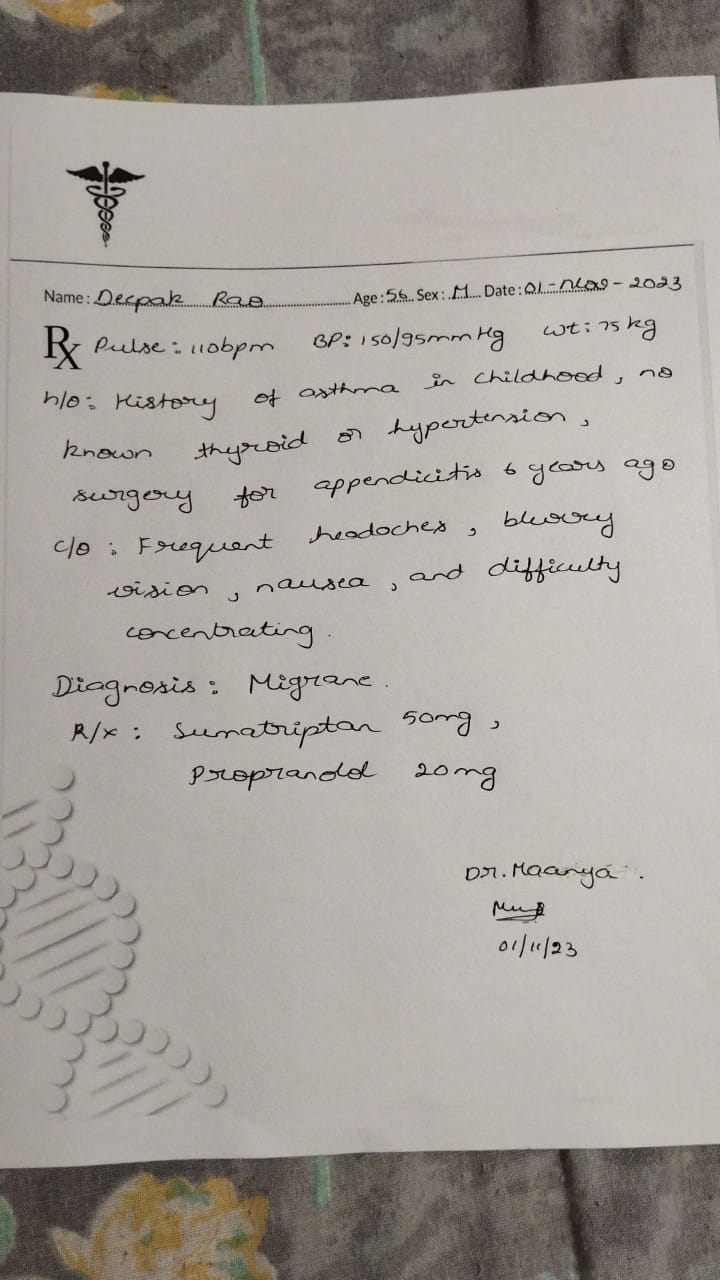 Name: Deepak Rao Age: 56 Sex: M Date: 01-Nov-2023
Rx Pulse: 110bpm BP: 150/95mmHg wt: 75 kg
h/o: History of asthma in childhood, no
known thyroid or hypertension,
surgery for appendicitis 6 years ago
c/o: Frequent headaches, blurry
vision, nausea, and difficulty
concentrating.
Diagnosis: Migrane.
R/x: Sumatriptan 50mg,
Propranolol 20mg
Dr. Maanya.
01/11/23